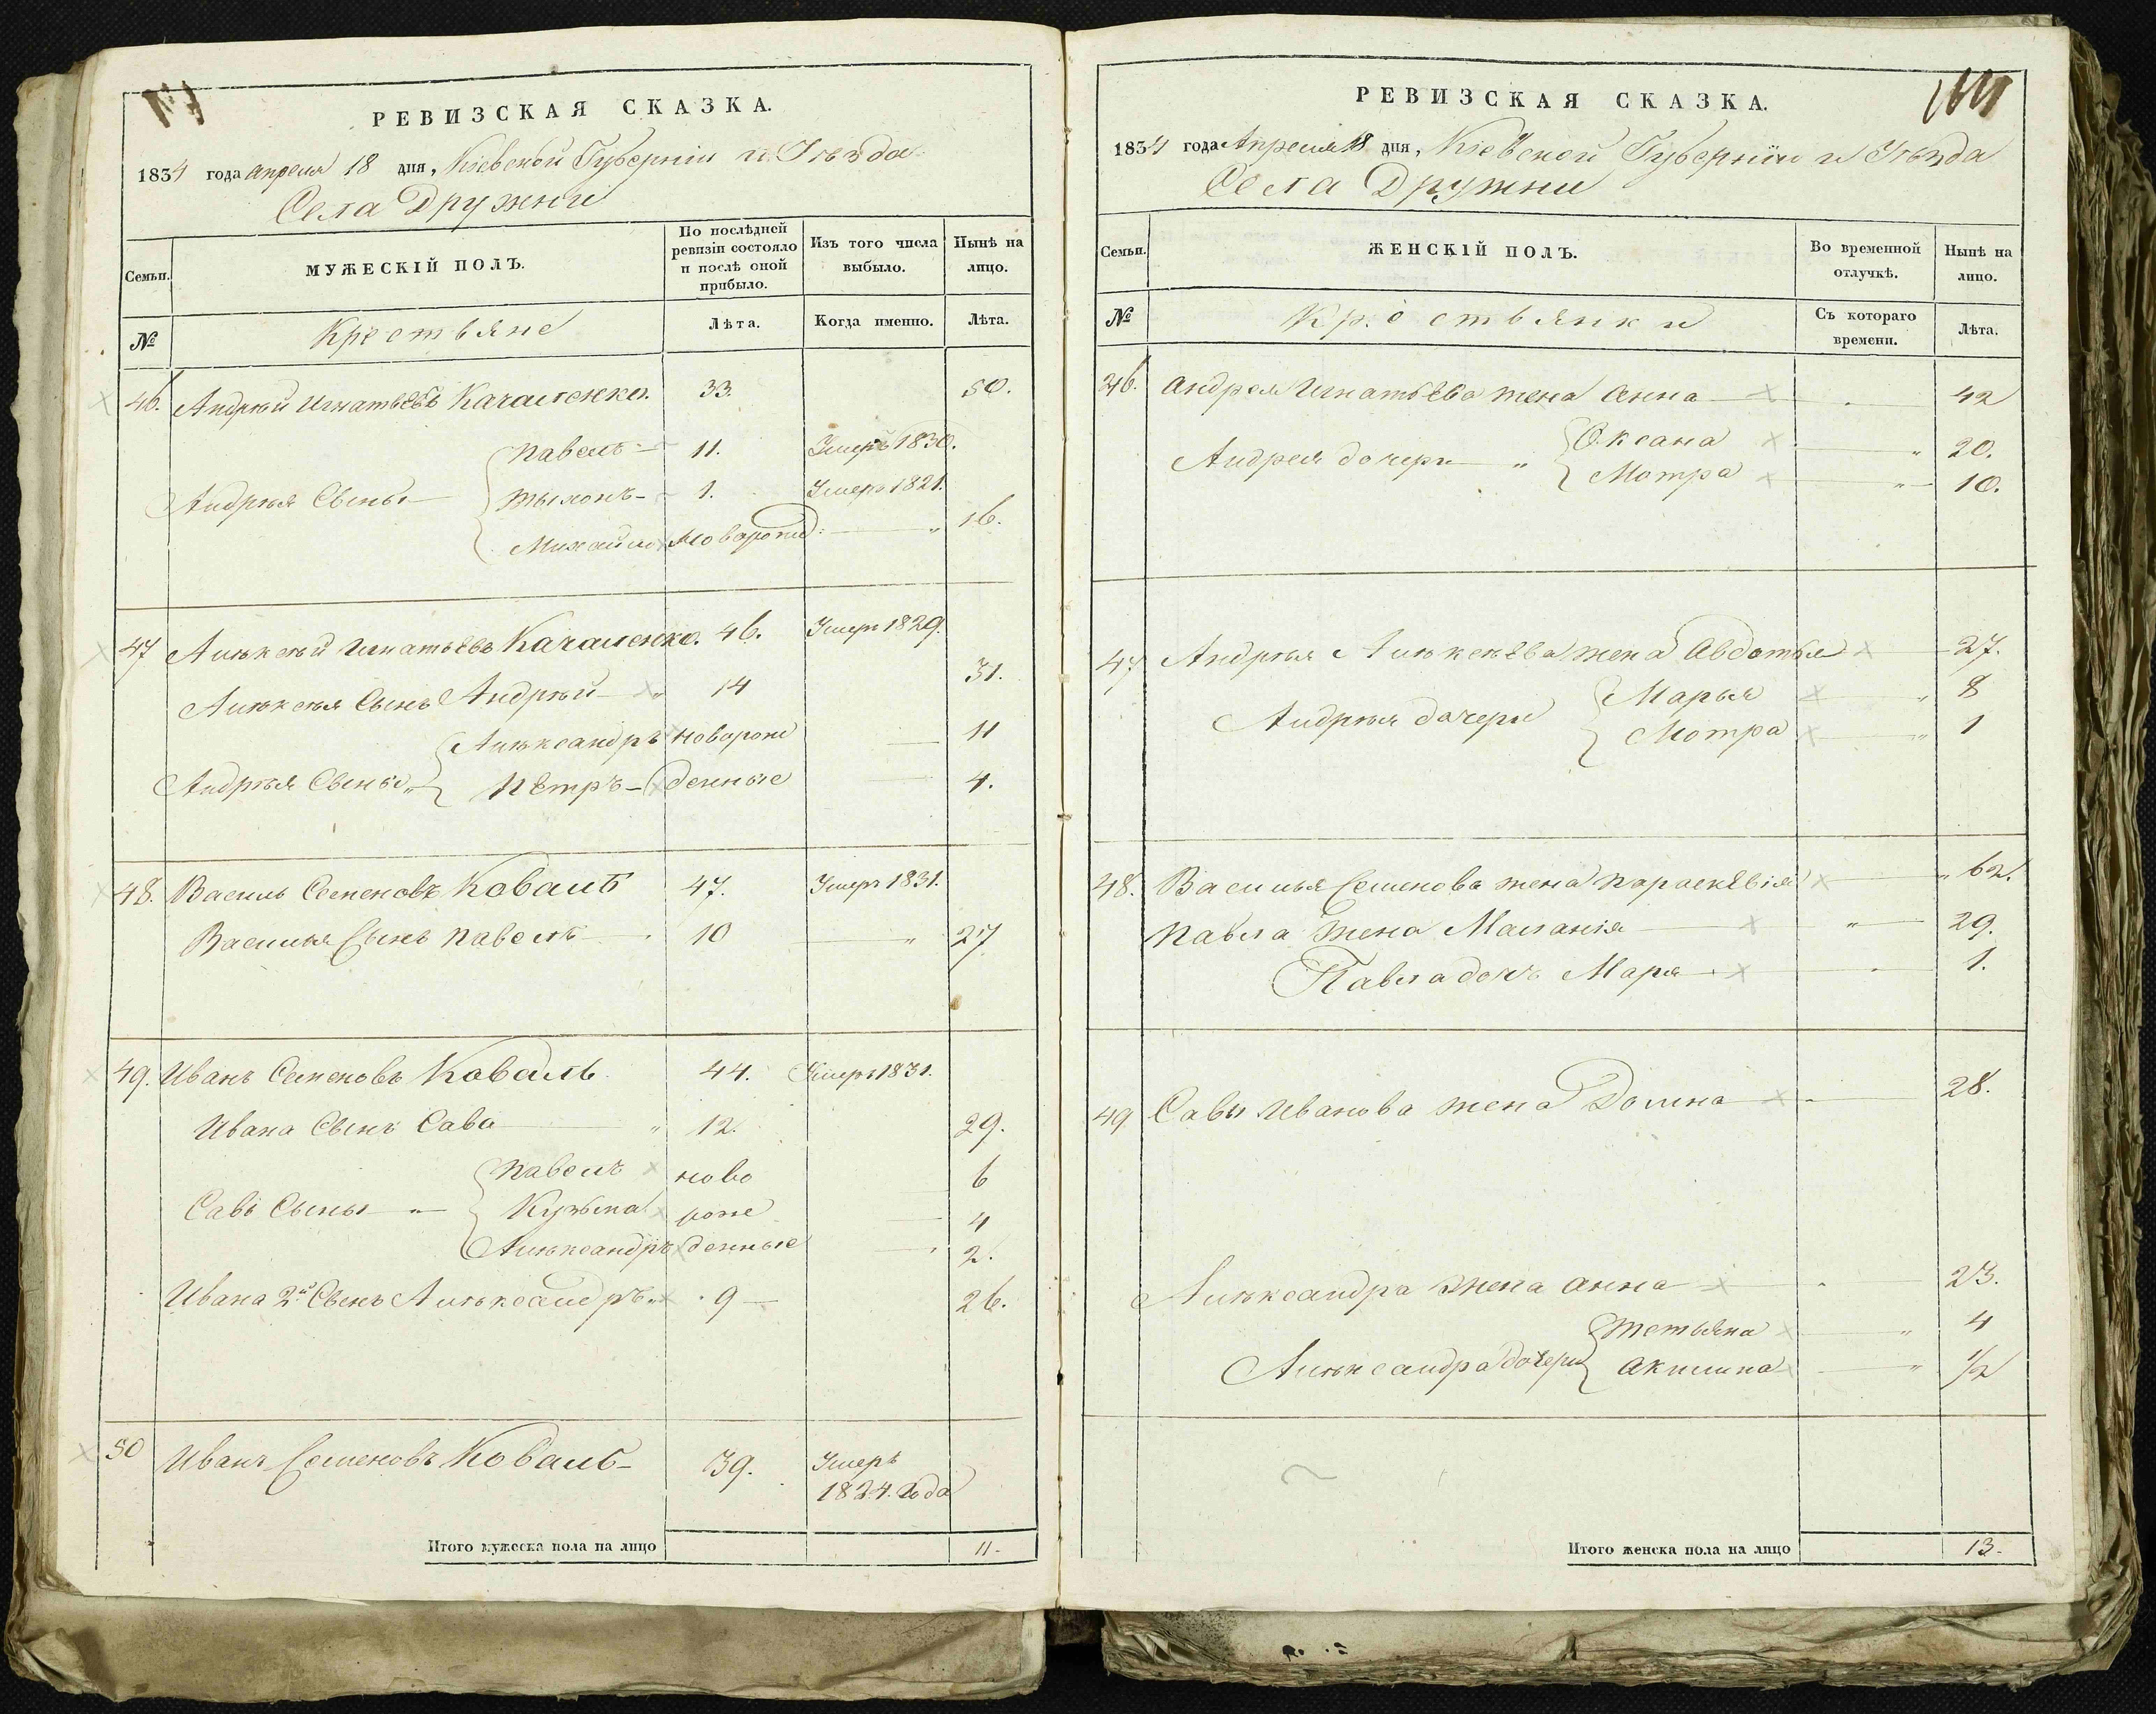 РЕВИЗСКАЯ СКАЗКА.
1834 года апреля 18 дня, Кіевской Губерніи и Уѣзда
Села Дружни
Семьи.
МУЖЕСКІЙ ПОЛЪ.
По послѣдней ревизіи состояло и послѣ оной прибыло.
Изъ того числа выбыло.
Нынѣ на лицо.
№
Крестьяне
Лѣта.
Когда именно.
Лѣта.
46. Андрѣй Игнатьевъ Качаленко. 33. 50.
Павелъ 11. Умеръ 1830.
Андрѣя Сыны Тыхонъ 1. Умеръ 1821.
Михайло новорожд: 16.
47 Алѣксѣй Игнатьевъ Качаленко. 46. Умеръ 1829.
Алѣксѣя Сынъ Андрѣй 14 31.
Алѣксандръ новорож 11
Андрѣя Сыны Петръ денные 4.
48. Василь Семеновъ Коваль 47. Умеръ 1831.
Василья Сынъ Павелъ 10 27
49. Иванъ Семеновъ Коваль 44. Умеръ 1831.
Ивана Сынъ Сава 12. 29.
Павелъ ново 6
Савы Сыны Кузьма рож 4
Алѣксандръ денные 2.
Ивана 2й Сынъ Алѣксандръ 9 26.
50 Иванъ Семеновъ Коваль 39. Умеръ
1824. Года
Итого мужеска пола на лицо 11.
РЕВИЗСКАЯ СКАЗКА.
1834 года Апреля 18 дня, Кіевской Губерніи и Уѣзда
Села Дружни
Семьи.
ЖЕНСКІЙ ПОЛЪ.
Во временной отлучкѣ.
Нынѣ на лицо.
№
Крестьянки
Съ котораго времени.
Лѣта.
46. Андрея Игнатьева жена Анна 42
Оксана 20.
Андрея дочери Мотра 10.
47 Андрѣя Алѣксѣева жена Авдотья 27.
Марья 8
Андрѣя дочери Мотра 1
48. Василья Семенова жена Параскевія 62.
Павла жена Маланія 29.
Павла дочь Маря 1.
49 Савы Иванова жена Домна 28.
Алѣксандра жена Анна 23.
Тетьяна 4
Алѣксандра дочери Акилина 1/2
Итого женска пола на лицо 13.